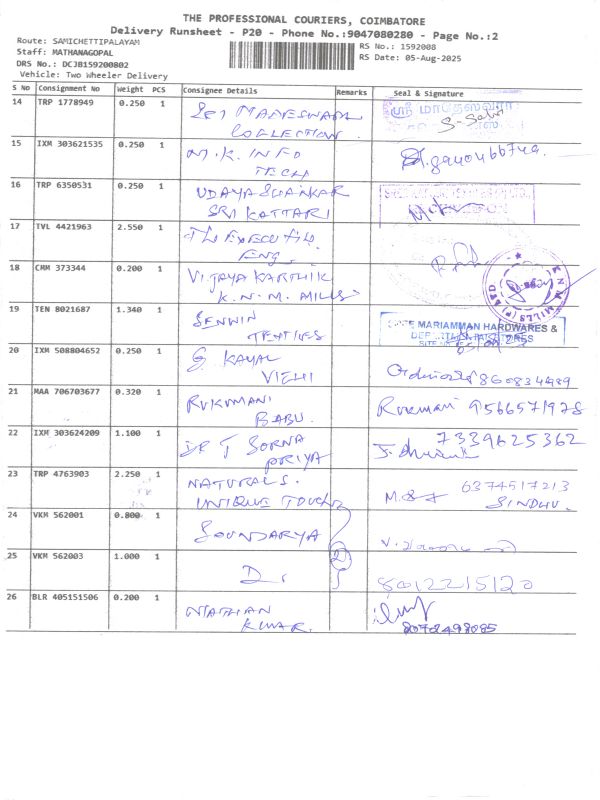 THE PROFESSIONAL COURIERS, COIMBATORE
Delivery Runsheet - P20 - Phone No.:9047080280 - Page No.:2
Route: SAMICHETTIPALAYAM
RS No.: 1592008
Staff: MATHANAGOPAL
RS Date: 05-Aug-2025
DRS No.: DCJB159200802
Vehicle: Two Wheeler Delivery
S No Consignment No Weight PCS Consignee Details Remarks Seal & Signature
14 TRP 1778949 0.250 1 SRI MADESWARA
COLLECTION.
ஸ்ரீ மாதேஸ்வரா
15 IXM 303621535 0.250 1 M.K. INFO
TECH
16 TRP 6350531 0.250 1 UDAYA SHANKAR
SRI KATTARI
17 TVL 4421963 2.550 1 THE EXECUTIVE
ENG.
18 CMM 373344 0.200 1 VIJAYA KARTHIK
K.N.M. MILLS
MILLS (P) LTD
19 TEN 8021687 1.340 1 SENWIN
TEXTILES
MARIAMMAN HARDWARES &
20 IXM 508804652 0.250 1 G KAYAL
VIZHI
860834489
21 MAA 706703677 0.320 1 RUKUMANI
BABU.
Rukmani 9566571978
22 IXM 303624209 1.100 1 DR T SORNA
PRIYA
7339625362
23 TRP 4763903 2.250 1 NATURALS.
UNIQUE TOUCH
6374517213
SINDHU.
24 VKM 562001 0.800 1 SOUNDARYA
25 VKM 562003 1.000 1 D. 2 8012215120
26 BLR 405151506 0.200 1 NATHAN
KUMAR.